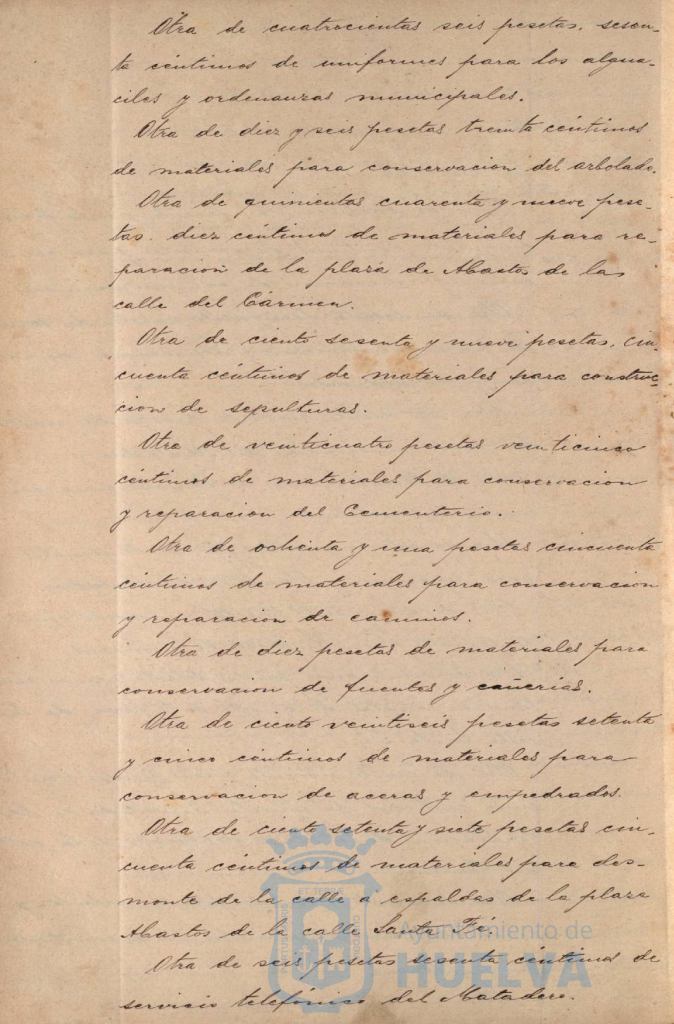 Otra de cuatrocientas seis pesetas, sesen-
ta céntimos de uniformes para los algua-
ciles y ordenanzas municipales.
Otra de diez y seis pesetas treinta céntimos
de materiales para conservacion del arbolado.
Otra de quinientas cuarenta y nueve pese-
tas diez céntimos de materiales para re-
paración de la plaza de Abastos de la
calle del Cármen.
Otra de ciento sesenta y nueve pesetas, cin-
cuenta céntimos de materiales para construc-
cion de sepulturas.
Otra de veinticuatro pesetas veinticinco
céntimos de materiales para conservacion
y reparacion del Cementerio.
Otra de ochenta y una pesetas cincuenta
céntimos de materiales para conservacion
y reparacion de caminos.
Otra de diez pesetas de materiales para
conservacion de fuentes y cañerias.
Otra de ciento veintiseis pesetas setenta
y cinco céntimos de materiales para
conservacion de aceras y empedrados.
Otra de ciento setenta y siete pesetas cin-
cuenta céntimos de materiales para des-
monte de la calle a espaldas de la plaza
Abastos de la calle Santa Fé.
Otra de seis pesetas sesenta céntimos de
servicio telefónico del Matadero.
Ayuntamiento de
HUELVA